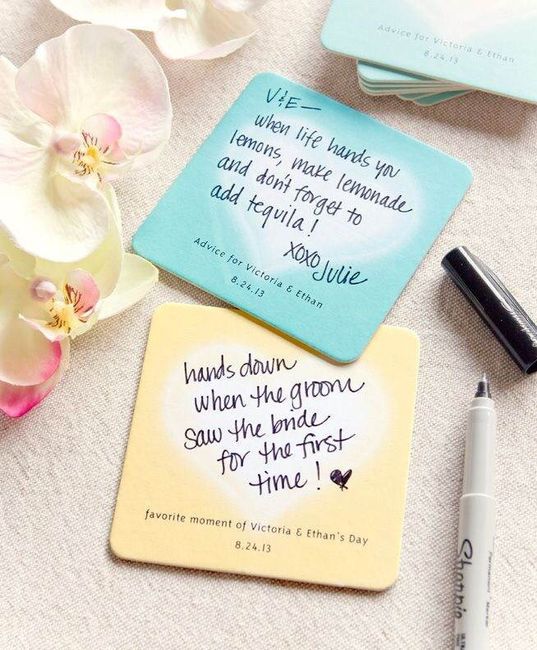 Advice for Victoria & Ethan
8.24.13
V & E —
when life hands you
lemons, make lemonade
and don't forget to
add tequila!
xoxo Julie
Advice for Victoria & Ethan
8.24.13
hands down
when the groom
saw the bride
for the first
time!
favorite moment of Victoria & Ethan's Day
8.24.13
Sharpie
Permanent Marker